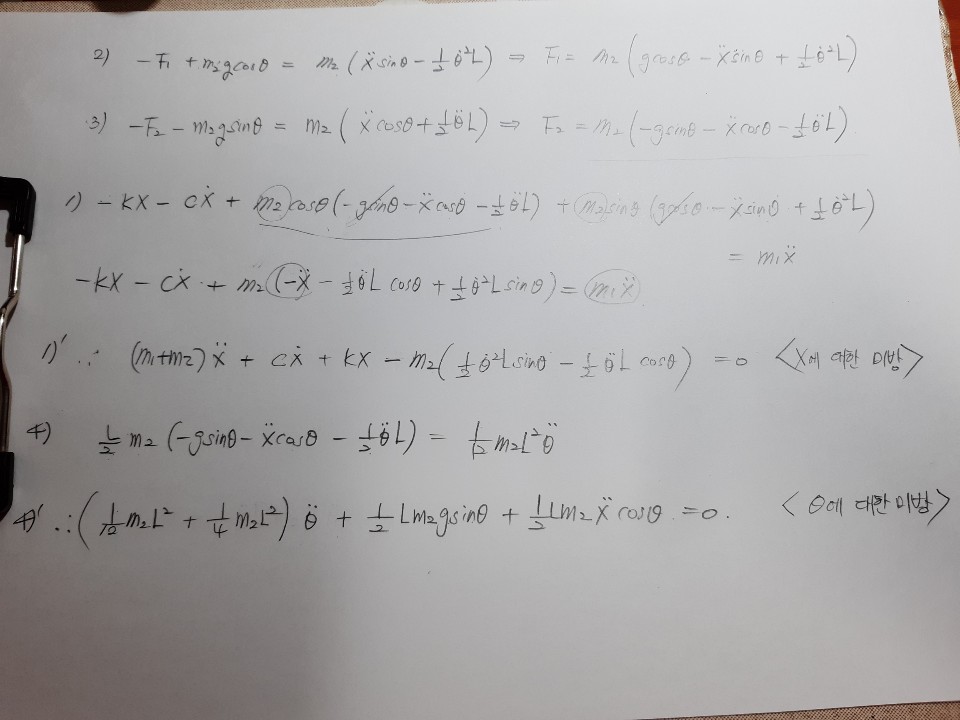 2) -F₁ + m₂gcosθ = m₂(ẍsinθ - ½θ̇²L) ⇒ F₁ = m₂(gcosθ - ẍsinθ + ½θ̇²L)
3) -F₂ - m₂gsinθ = m₂(ẍcosθ + ½θ̈L) ⇒ F₂ = m₂(-gsinθ - ẍcosθ - ½θ̈L)
1) -kx - cẋ + m₂cosθ(-gsinθ - ẍcosθ - ½θ̈L) + m₂sinθ(gcosθ - ẍsinθ + ½θ̇²L)
= m₁ẍ
-kx - cẋ + m₂(-ẍ - ½θ̈L cosθ + ½θ̇²L sinθ) = m₁ẍ
1)' ∴ (m₁+m₂)ẍ + cẋ + kx - m₂(½θ̇²Lsinθ - ½θ̈L cosθ) = 0 <x에 대한 미방>
4) ½m₂(-gsinθ - ẍcosθ - ½θ̈L) = 1/12 m₂L²θ̈
4)' ∴ (1/12 m₂L² + ¼m₂L²)θ̈ + ½Lm₂gsinθ + ½Lm₂ẍcosθ = 0. <θ에 대한 미방>